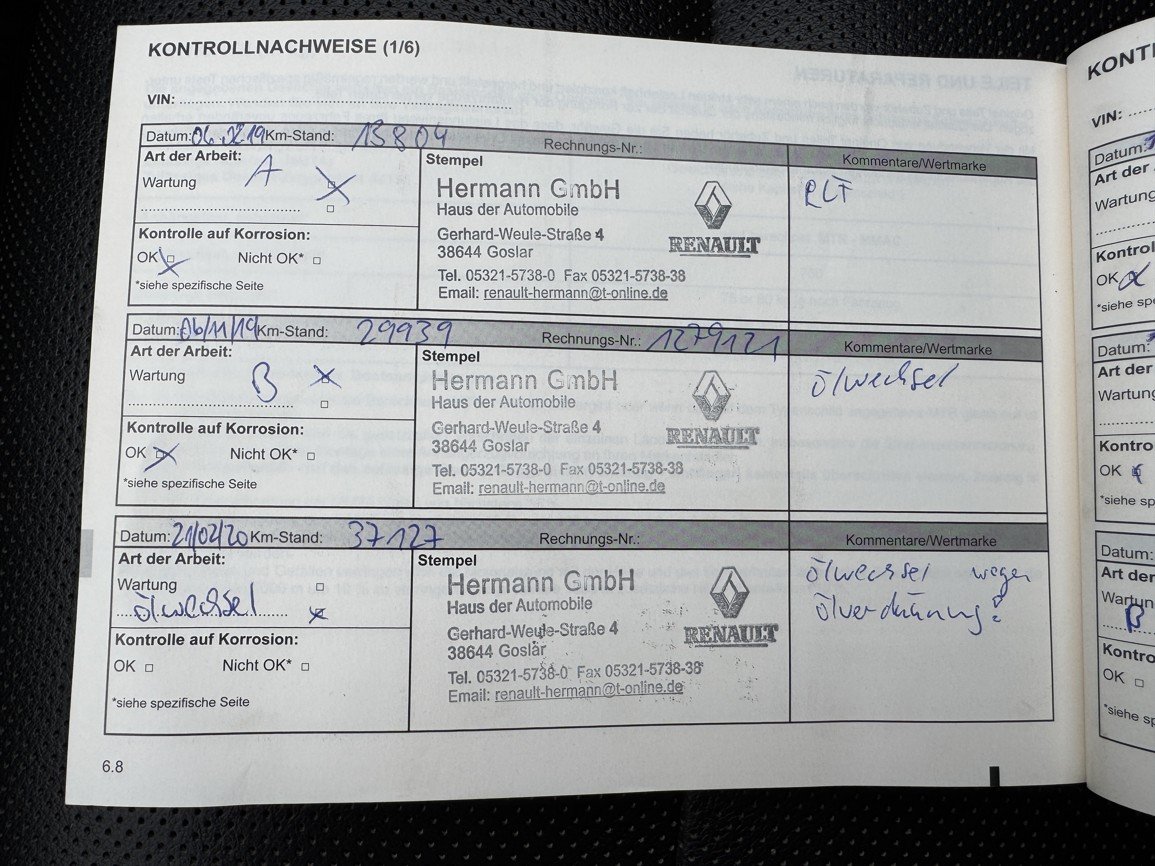 KONTROLLNACHWEISE (1/6)
VIN:
Datum: Km-Stand: 13804 Rechnungs-Nr.: Kommentare/Wertmarke
Art der Arbeit: Stempel
Wartung A
Hermann GmbH RLF
Haus der Automobile
Kontrolle auf Korrosion:
Gerhard-Weule-Straße 4
38644 Goslar RENAULT
OK Nicht OK*
Tel. 05321-5738-0 Fax 05321-5738-38
*siehe spezifische Seite
Email: renault-hermann@t-online.de
Datum: 06/11/19 Km-Stand: 29939 Rechnungs-Nr.: 1279121 Kommentare/Wertmarke
Art der Arbeit: Stempel
Wartung B
Hermann GmbH Ölwechsel
Haus der Automobile
Kontrolle auf Korrosion:
Gerhard-Weule-Straße 4
38644 Goslar RENAULT
OK Nicht OK*
Tel. 05321-5738-0 Fax 05321-5738-38
*siehe spezifische Seite
Email: renault-hermann@t-online.de
Datum: 21/02/20 Km-Stand: 37127 Rechnungs-Nr.: Kommentare/Wertmarke
Art der Arbeit: Stempel
Wartung
Ölwechsel
Hermann GmbH Ölwechsel wegen
Haus der Automobile Ölverdünnung!
Kontrolle auf Korrosion:
Gerhard-Weule-Straße 4
38644 Goslar RENAULT
OK Nicht OK*
Tel. 05321-5738-0 Fax 05321-5738-38
*siehe spezifische Seite
Email: renault-hermann@t-online.de
6.8
VIN:
Datum:
Art der
Wartung
OK
*siehe
Datum:
Art der
Wartung
OK
*siehe
Datum:
Art der
Wartung
B
OK
*siehe